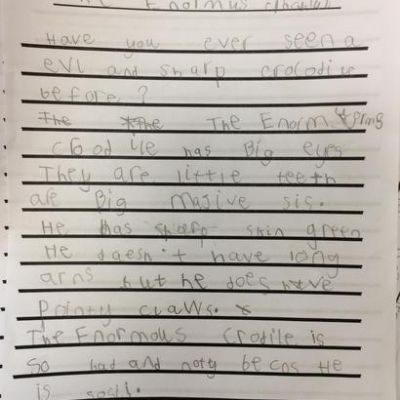 Enormus
Have you ever seen a
evl and sharp crocodile
before?
The The The Enorm
crood ile has Big eyes
They are little teeth
are Big masive sis.
He has sharp skin green
He doesn't have long
arns but he does have
pointy claws.
The Enormous crodile is
so bad and noty be cos He
is